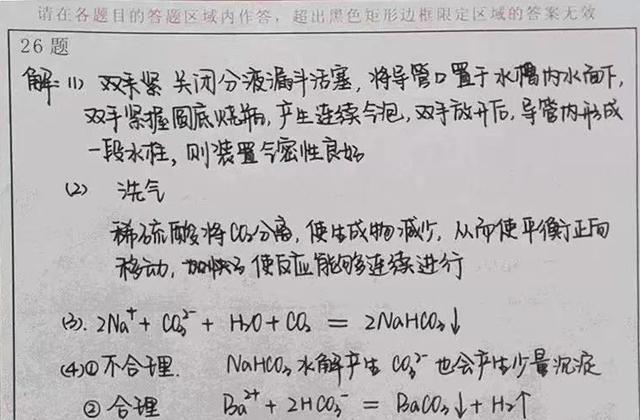 请在各题目的答题区域内作答，超出黑色矩形边框限定区域的答案无效
26题
解：(1) 关闭分液漏斗活塞，将导管口置于水槽内水面下，
双手紧握圆底烧瓶，产生连续气泡，双手放开后，导管内形成
一段水柱，则装置气密性良好
(2) 洗气
稀硫酸将CO₂分离，使生成物减少，从而使平衡正向
移动，使反应能够连续进行
(3). 2Na⁺ + CO₃²⁻ + H₂O + CO₂ = 2NaHCO₃↓
(4)① 不合理. NaHCO₃水解产生 CO₃²⁻ 也会产生少量沉淀
② 合理 Ba²⁺ + 2HCO₃⁻ = BaCO₃↓ + H₂↑